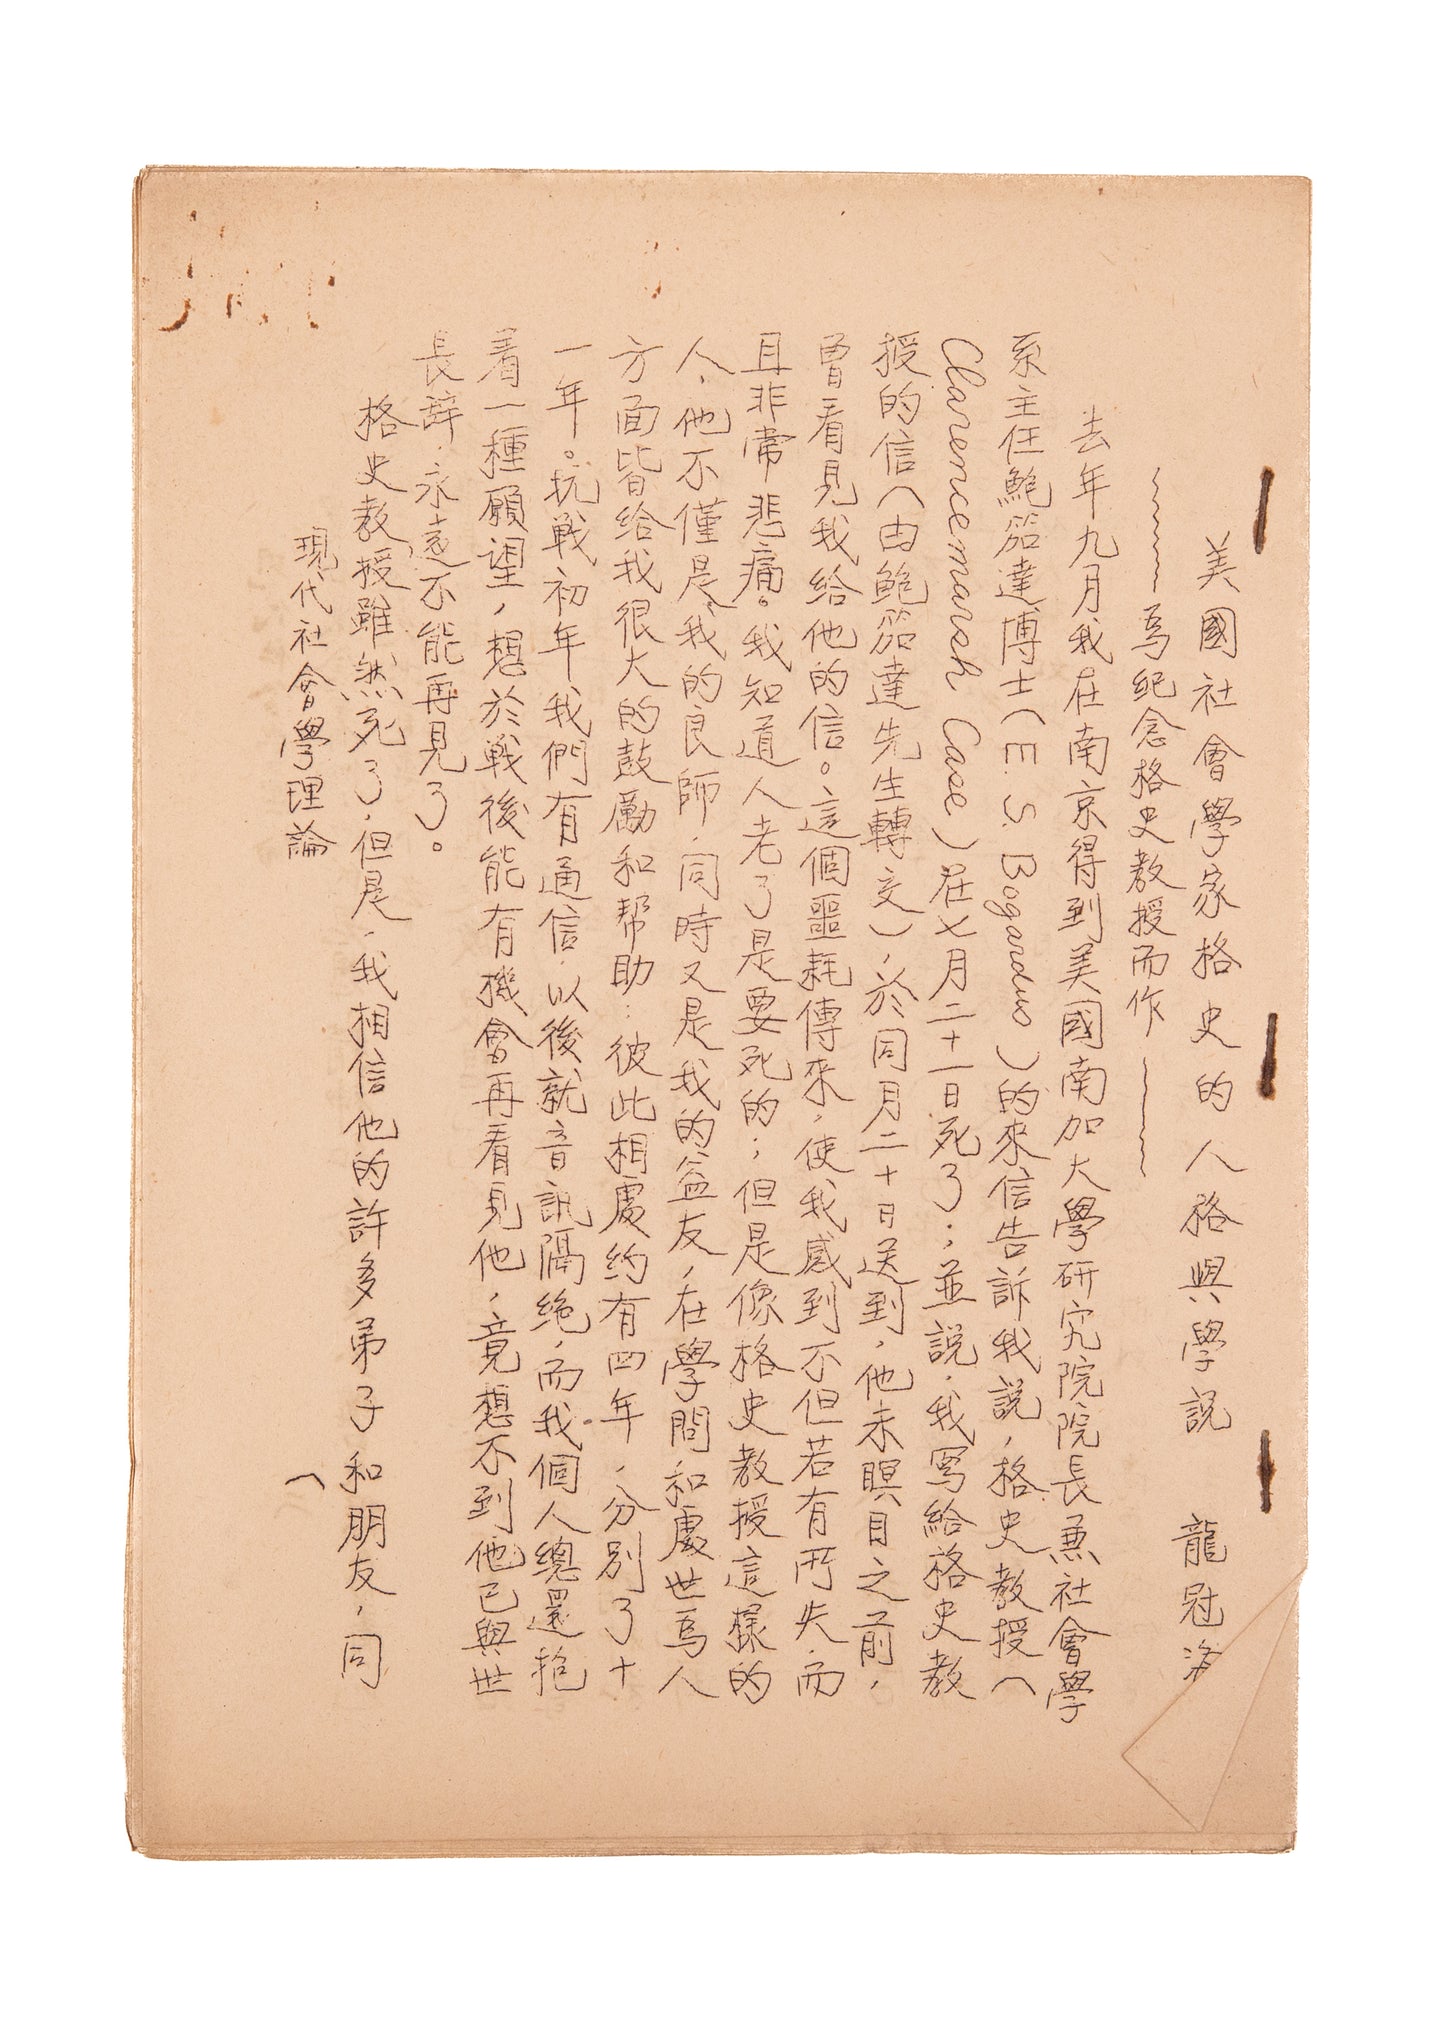 美國社會學家格史的人格與學說　龍冠海
——為紀念格史教授而作——
去年九月我在南京得到美國南加大學研究院院長兼社會學
系主任鮑笳達博士(E. S. Bogardus)的來信告訴我説，格史教授(
Clarencemarsh Case)在七月二十一日死了；並説，我寫給格史教
授的信(由鮑笳達先生轉交)，於同月二十日送到，他未瞑目之前，
曾看見我給他的信。這個噩耗傳來，使我感到不但若有所失，而
且非常悲痛。我知道人老了是要死的；但是像格史教授這樣的
人，他不僅是我的良師，同時又是我的益友，在學問和處世為人
方面皆給我很大的鼓勵和帮助；彼此相處約有四年，分別了十
一年。抗戰初年我們有通信，以後就音訊隔絶，而我個人總還抱
着一種願望，想於戰後能有機會再看見他，竟想不到他已與世
長辞，永遠不能再見了。
格史教授雖然死了，但是，我相信他的許多弟子和朋友，同
現代社會學理論　(